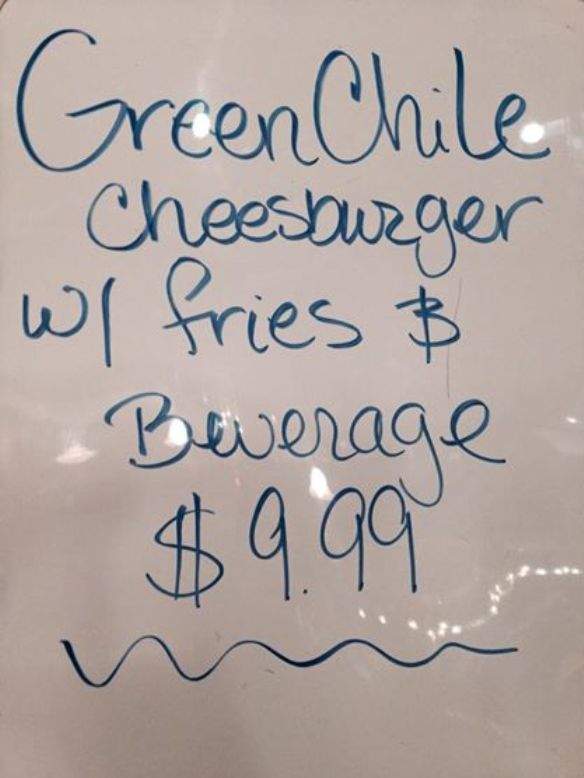 Green Chile
Cheesburger
w/ fries &
Beverage
$9.99